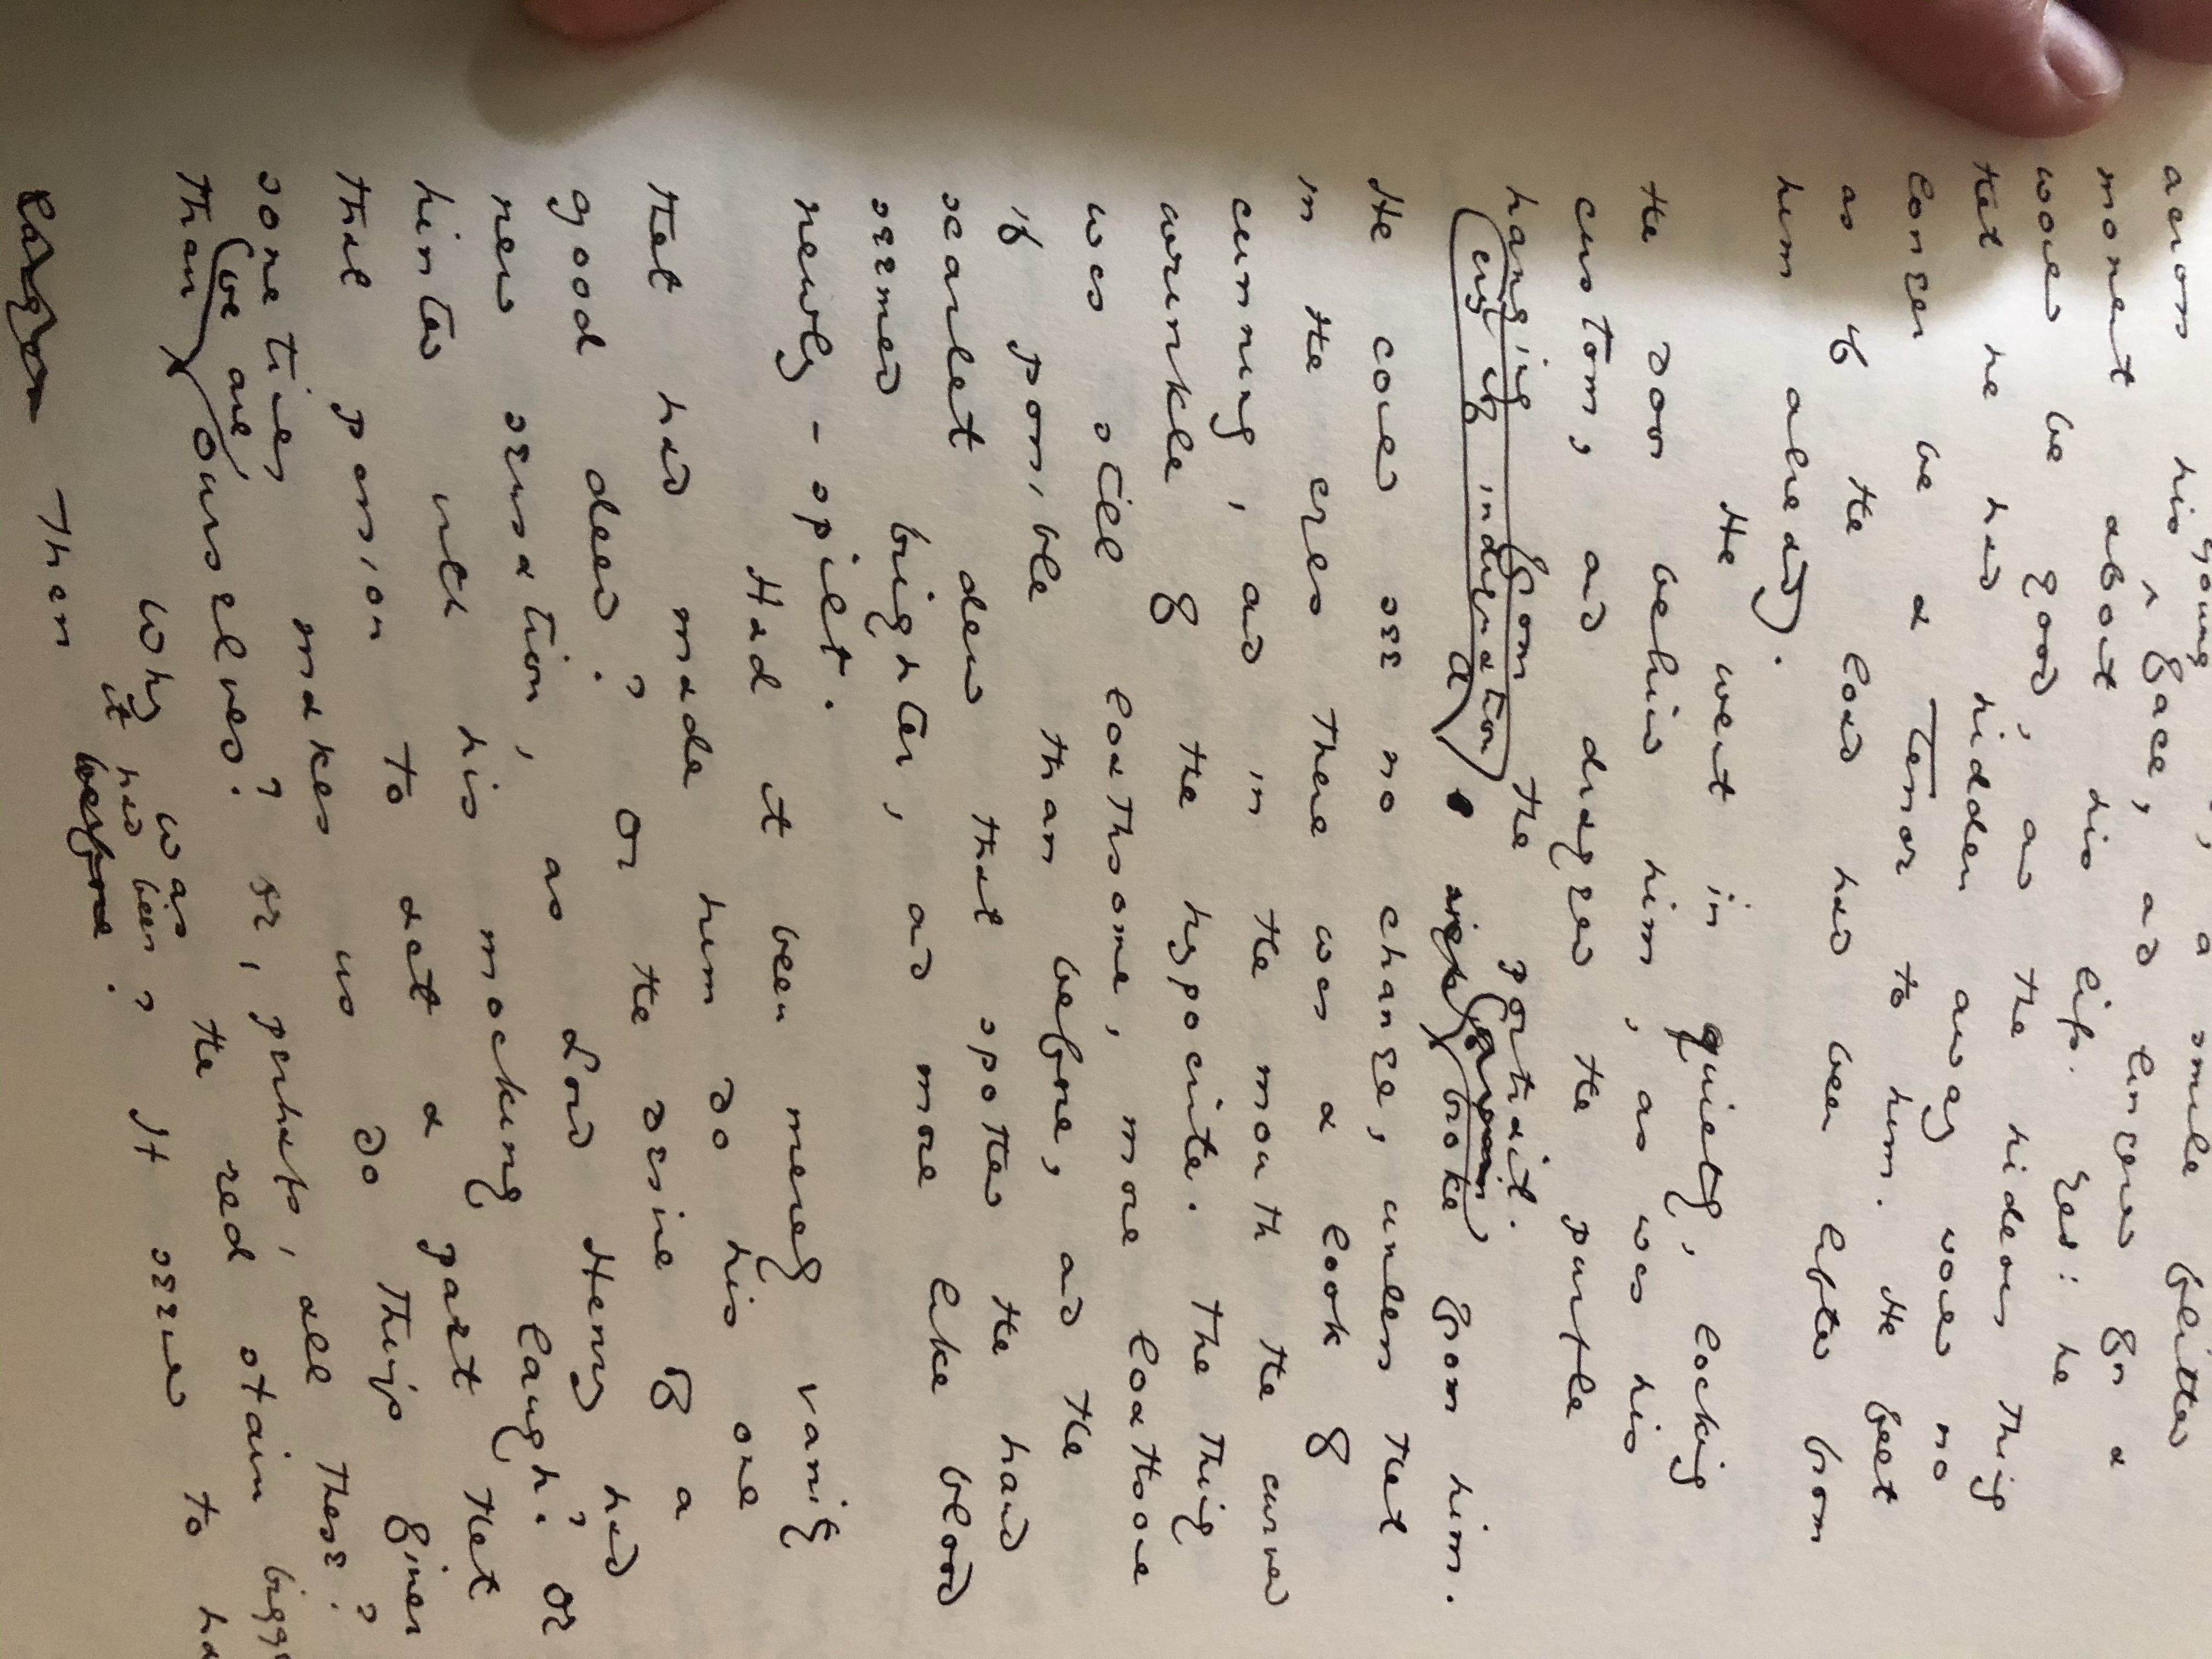 across his young face, and lingered for a
moment about his lips. Yes: he
would be good, and the hideous thing
that he had hidden away would no
longer be a terror to him. He felt
as if the load had been lifted from
him already.
He went in quietly, locking
the door behind him, as was his
custom, and dragged the purple
hanging from the portrait.
cry of indignation broke from him.
He could see no change, unless that
in the eyes there was a look of
cunning, and in the mouth the curved
wrinkle of the hypocrite. The thing
was still loathsome, more loathsome
if possible than before, and the
scarlet dew that spotted the hand
seemed brighter, and more like blood
newly-spilt.
Had it been merely vanity
that had made him do his one
good deed? Or the desire of a
new sensation, as Lord Henry had
hinted with his mocking laugh? Or
that passion to act a part that
sometimes makes us do things finer
than we are ourselves? Or, perhaps, all these?
Why was the red stain
it had been? It seemed to
larger Then before